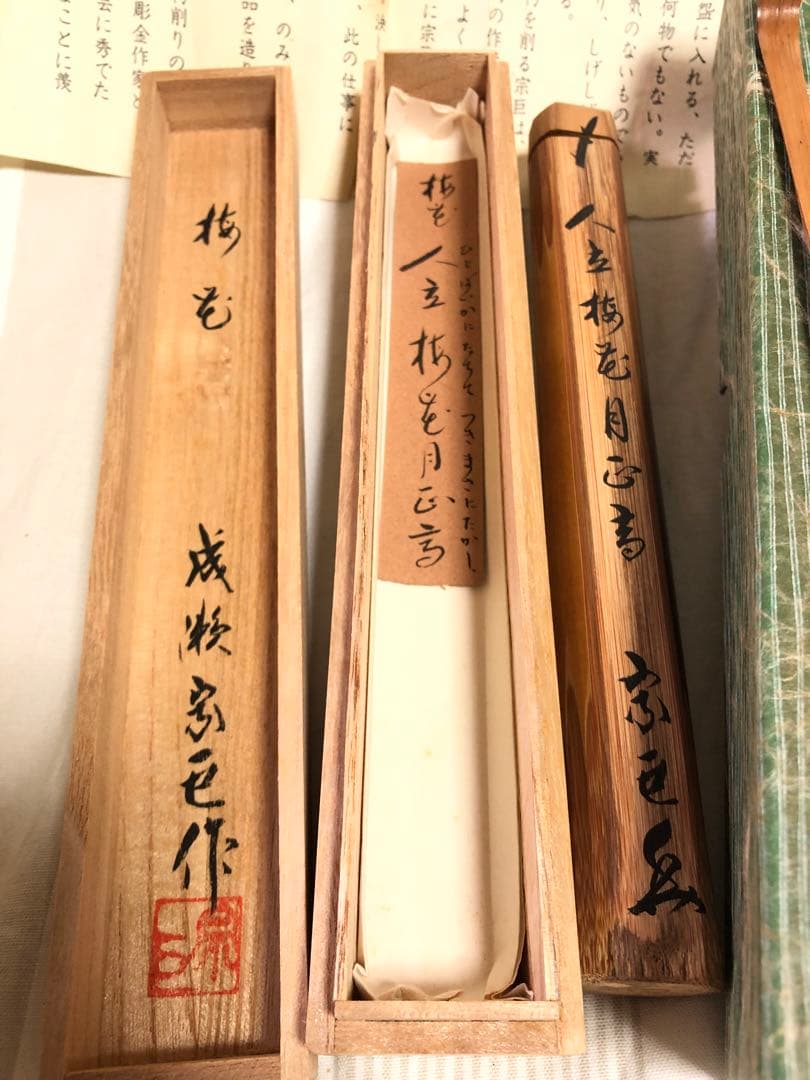 に入れる、ただ
何物でもない。実
気のないもので
り、しげし
る。
を削る宗巨は、
の作
に宗
よく
此の仕事に
、のみ
品を造り
削りの
彫金作家と
芸に秀でた
ことに羨
人立梅花月正高 宗巨
梅花
ひとばいかにたちて つきまさにたかし
人立梅花月正高
梅花
成瀬宗巨作
宗巨